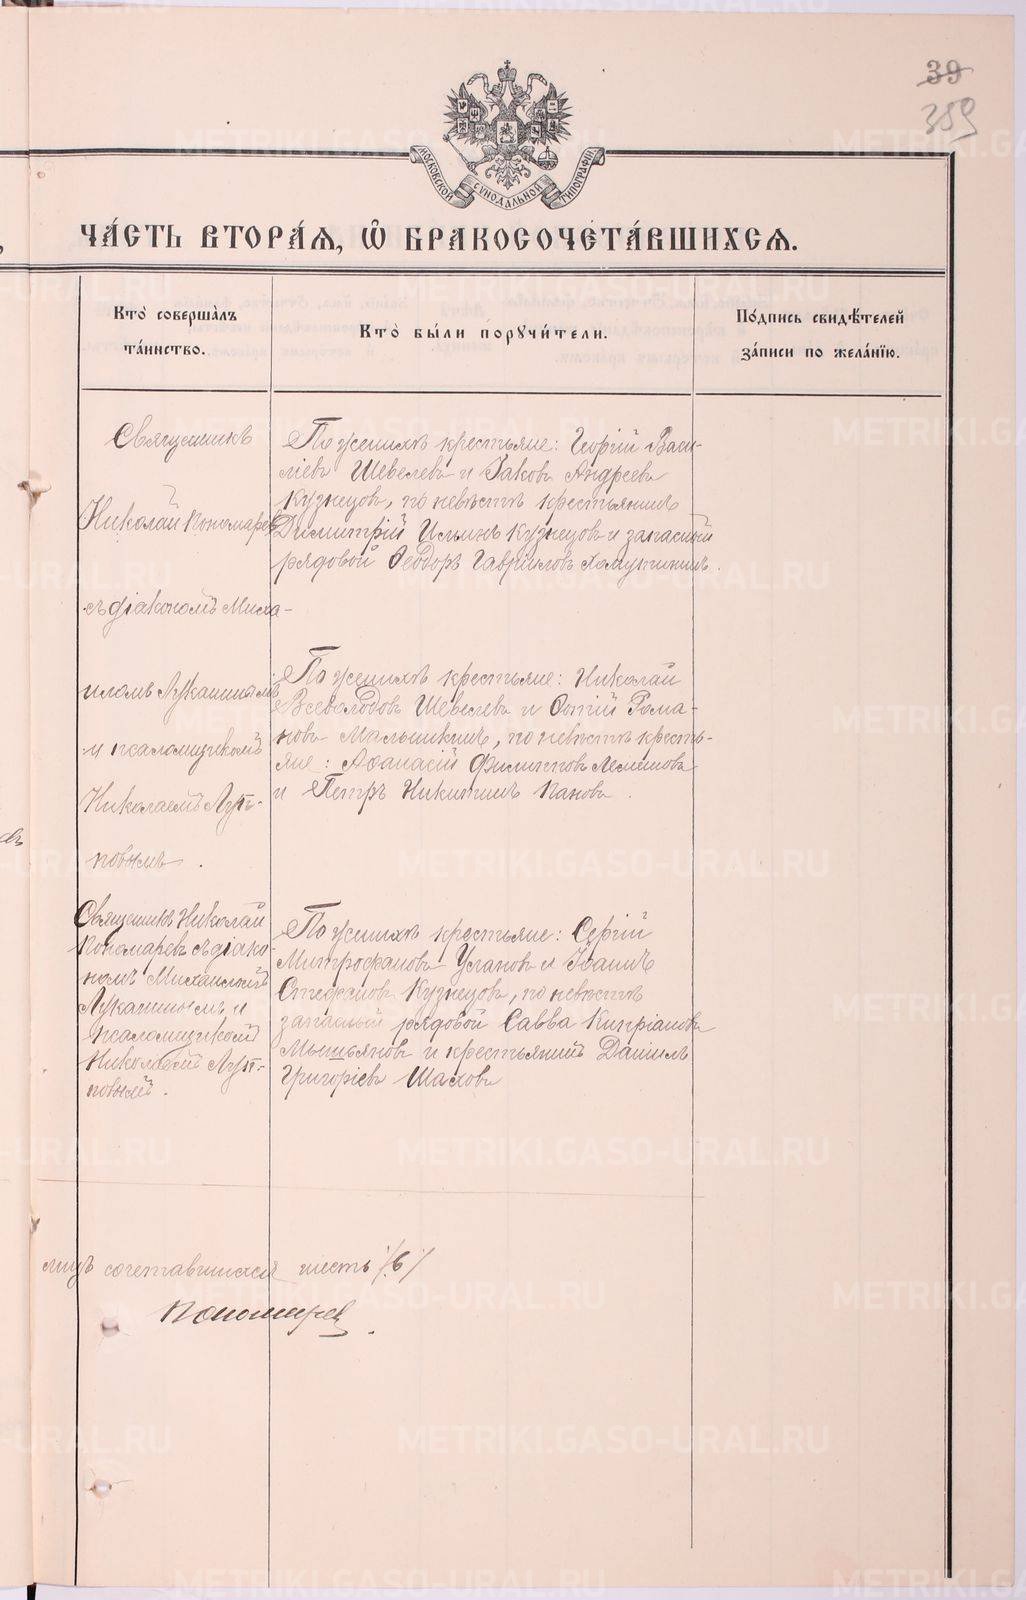 39
359
МОСКОВСКОЙ СУНОДАЛЬНОЙ ТИПОГРАФІИ.
ЧА́СТЬ ВТОРА́Я, Ѡ҆ БРАКОСОЧЕТА́ВШИХСЯ.
Кто̀ соверша́лъ
та́инство.
Кто̀ бы́ли порꙋчи́тели.
По́дпись свидѣ́телей
за́писи по жела́нїю.
Священникъ
Николай Пономаревъ
съ діакономъ Миха-
иломъ Лукинымъ
и псаломщикомъ
Николаемъ Луп-
повымъ.
По женихѣ крестьяне: Георгій Васи-
ліевъ Шевелевъ и Іаковъ Андреевъ
Кузнецовъ, по невѣстѣ крестьянинъ
Димитрій Ильинъ Кузнецовъ и запасный
рядовой Ѳеодоръ Гавриловъ Хомутининъ.
По женихѣ крестьяне: Николай
Всеволодовъ Шевелевъ и Фотій Рома-
новъ Мыльникъ, по невѣстѣ кресть-
яне: Аѳанасій Филипповъ
и Петръ Никитинъ Пановъ.
Священникъ Николай
Пономаревъ съ діако-
номъ Михаиломъ
Лукинымъ и
псаломщикомъ
Николаемъ Луп-
повымъ.
По женихѣ крестьяне: Сергій
Митрофановъ Улановъ и Іоаннъ
Стефановъ Кузнецовъ, по невѣстѣ
запасный рядовой Савва Кипріановъ
Мышьяновъ и крестьянинъ Даніилъ
Григоріевъ Шаховъ
лицъ сочетавшихся шесть /6/
Пономаревъ.
METRIKI.GASO-URAL.RU